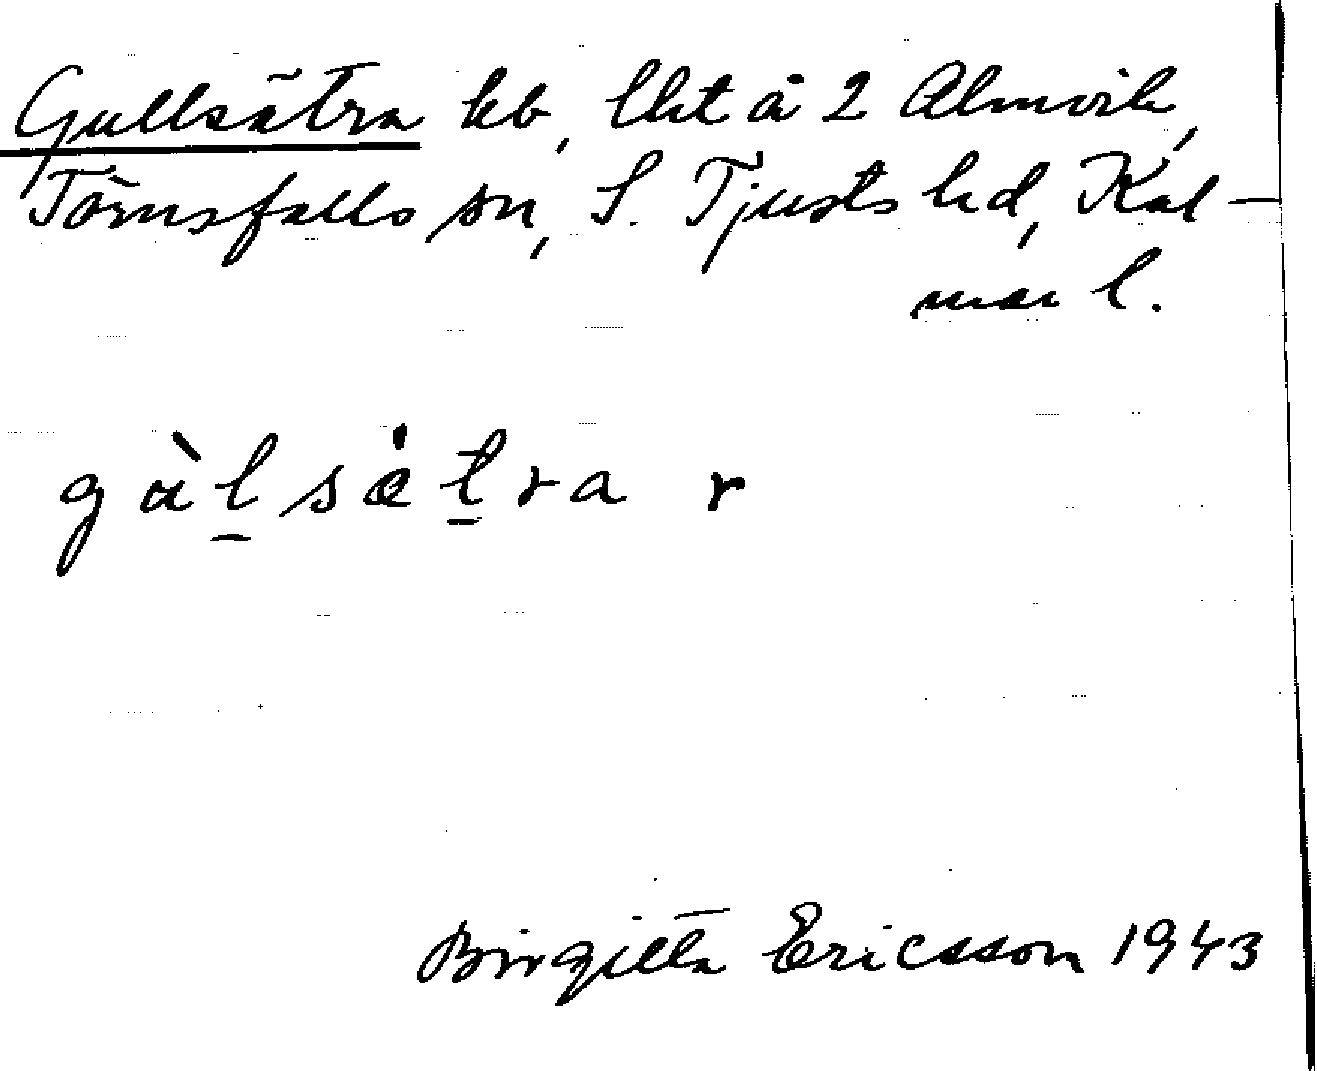 Gullsätra kb, lht å 2 Almvik,
Törnsfalls sn, S. Tjusts hd, Kal-
mar l.
gàlsätra r
Birgitta Ericsson 1943